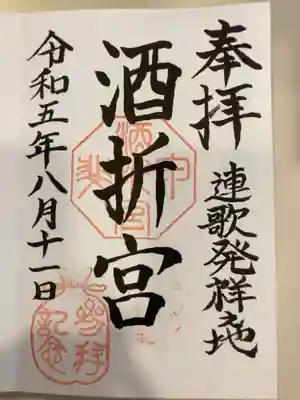 奉拝
連歌発祥之地
酒折宮
令和五年八月十一日
参拝
記念